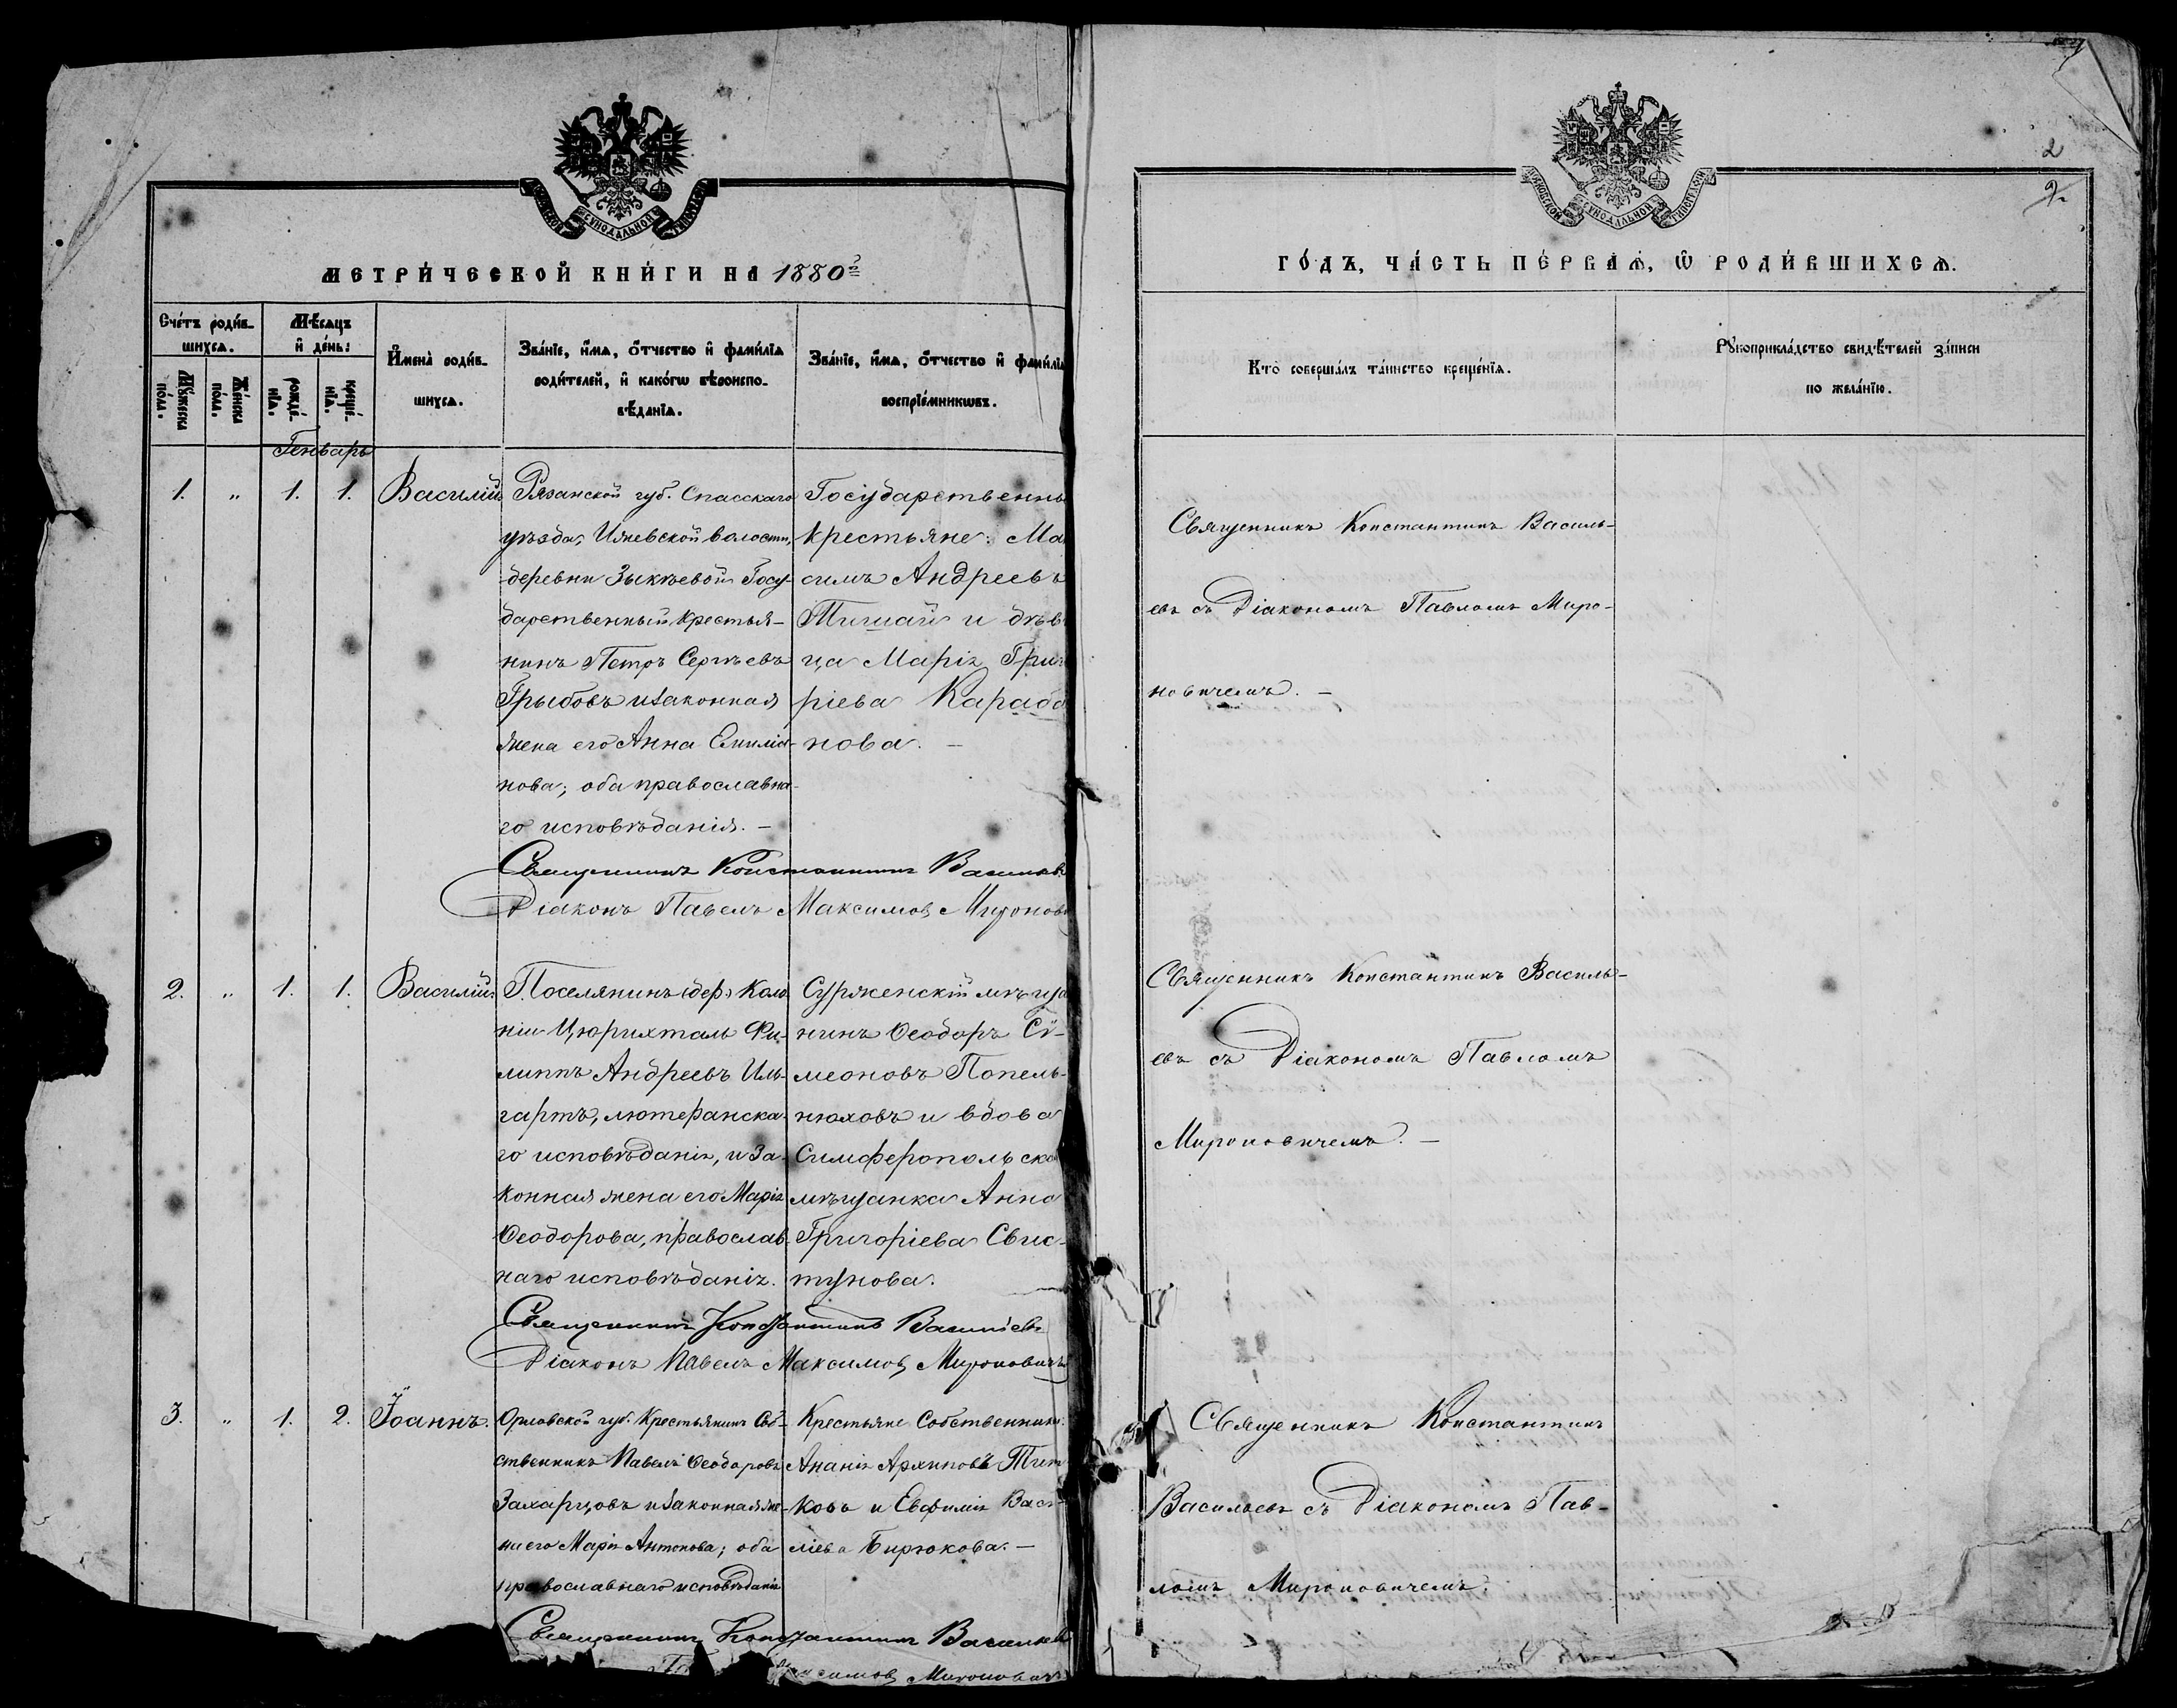 МОСКОВСКОЙ СѴНОДАЛЬНОЙ ТИПОГРАФІИ
МЕТРИ́ЧЕСКОЙ КНИ́ГИ НА 1880й
Сче́тъ роди́в-
шихсѧ.
Мѣ́сѧцъ
и҆ де́нь:
Мꙋ́жеска
по́ла.
Же́нска
по́ла.
рожде́-
нїѧ.
креще́-
нїѧ.
И҆мена̀ роди́в-
шихсѧ.
Зва́нїе, и҆́мѧ, ѻ҆́тчество и҆ фами́лїѧ
роди́телей, и҆ како́гѡ вѣроиспо-
вѣ́данїѧ.
Зва́нїе, и҆́мѧ, ѻ҆́тчество и҆ фами́лїѧ
воспрїе́мникѡвъ.
Генварь
1. " 1. 1. Василій
Рязанской губ. Спасскаго
уѣзда, Ижевской волости,
деревни Зыкѣевой Госу-
дарственный Крестья-
нинъ Петръ Сергѣевъ
Грыбовъ и законная
жена его Анна Емилiа-
нова; оба православна-
го исповѣданія. —
Государственны
крестьяне: Ма
симъ Андреевъ
Тишай и дѣв
ца Марія Григ
ріева Караба
нова. —
Священникъ Константинъ Васильевъ
Діаконъ Павелъ Максимовъ Миронови
2. " 1. 1. Василій
Поселянинъ (дер) Коло
ніи Цюрихталь Фи-
липпъ Андреевъ Иль-
гартъ, лютеранска-
го исповѣданія, и за-
конная жена его Марія
Ѳеодорова, православ-
наго исповѣданія.
Суржескій мѣща
нинъ Ѳеодоръ Сѵ-
меоновъ Попель-
нюховъ и вдова
Симферопольска
мѣщанка Анна
Григоріева Свис-
тунова.
Священникъ Константинъ Васильевъ
Діаконъ Павелъ Максимовъ Мироновичъ
3. " 1. 2. Іоаннъ.
Орловской губ. Крестьянинъ Соб-
ственникъ Павелъ Ѳеодоровъ
Захарцовъ и законная же-
на его Марія Антонова; оба
православнаго исповѣданія
Крестьяне Собственники:
Ананія Архиповъ Тит
ковъ и Евфимія Васи-
ліева Бирюкова. —
Священникъ Константинъ Васильевъ
симовъ Мироновичъ
2
МОСКОВСКОЙ СѴНОДАЛЬНОЙ ТИПОГРАФІИ
ГО́ДЪ, ЧА́СТЬ ПЕ́РВАѦ, Ѡ҆ РОДИ́ВШИХСѦ.
Кто̀ соверша́лъ та́инство креще́нїѧ.
Рꙋкоприкла́дство свидѣ́телей за́писи
по жела́нїю.
Священникъ Константинъ Василь-
евъ съ Діакономъ Павломъ Миро-
новичемъ. —
Священникъ Константинъ Василь-
евъ съ Діакономъ Павломъ
Мироновичемъ. —
Священникъ Константинъ
Васильевъ съ Діакономъ Пав-
ломъ Мироновичемъ.